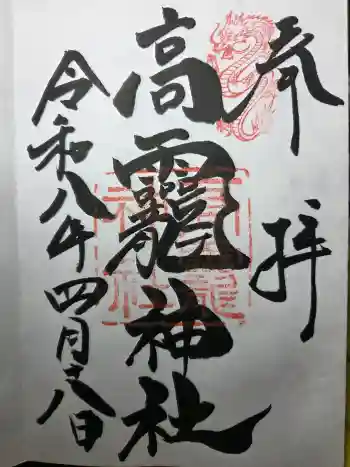 奉拝
高龗神社
令和八年四月十八日